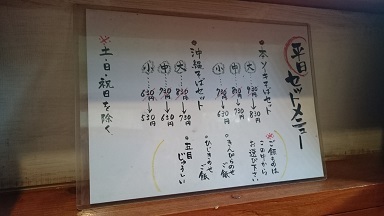 平日セットメニュー
・本ソーキそばセット
大 930円→830円
中 830円→730円
小 730円→630円
・沖縄そばセット
大 830円→730円
中 730円→630円
小 630円→530円
※土・日・祝日を除く
※ご飯ものは
この中から
お選び下さい
・きんぴらのせ
ご飯
・ひじきのせ
ご飯
・五目
じゅーしい